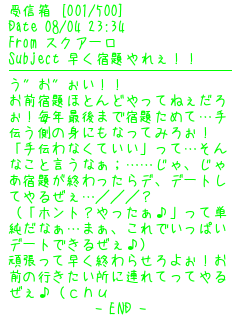 受信箱 [001/500]
Date 08/04 23:34
From スクアーロ
Subject 早く宿題やれぇ！！
う”お”ぉい！！
お前宿題ほとんどやってねぇだろ
ぉ！毎年最後まで宿題ためて…手
伝う側の身にもなってみろぉ！
「手伝わなくていい」って…そん
なこと言うなぁ；……じゃ、じゃ
あ宿題が終わったらデ、デートし
てやるぜぇ…／／／？
（「ホント？やったぁ♪」って単
純だなぁ…まぁ、これでいっぱい
デートできるぜぇ♪）
頑張って早く終わらせろよぉ！お
前の行きたい所に連れてってやる
ぜぇ♪（ｃｈｕ
- END -